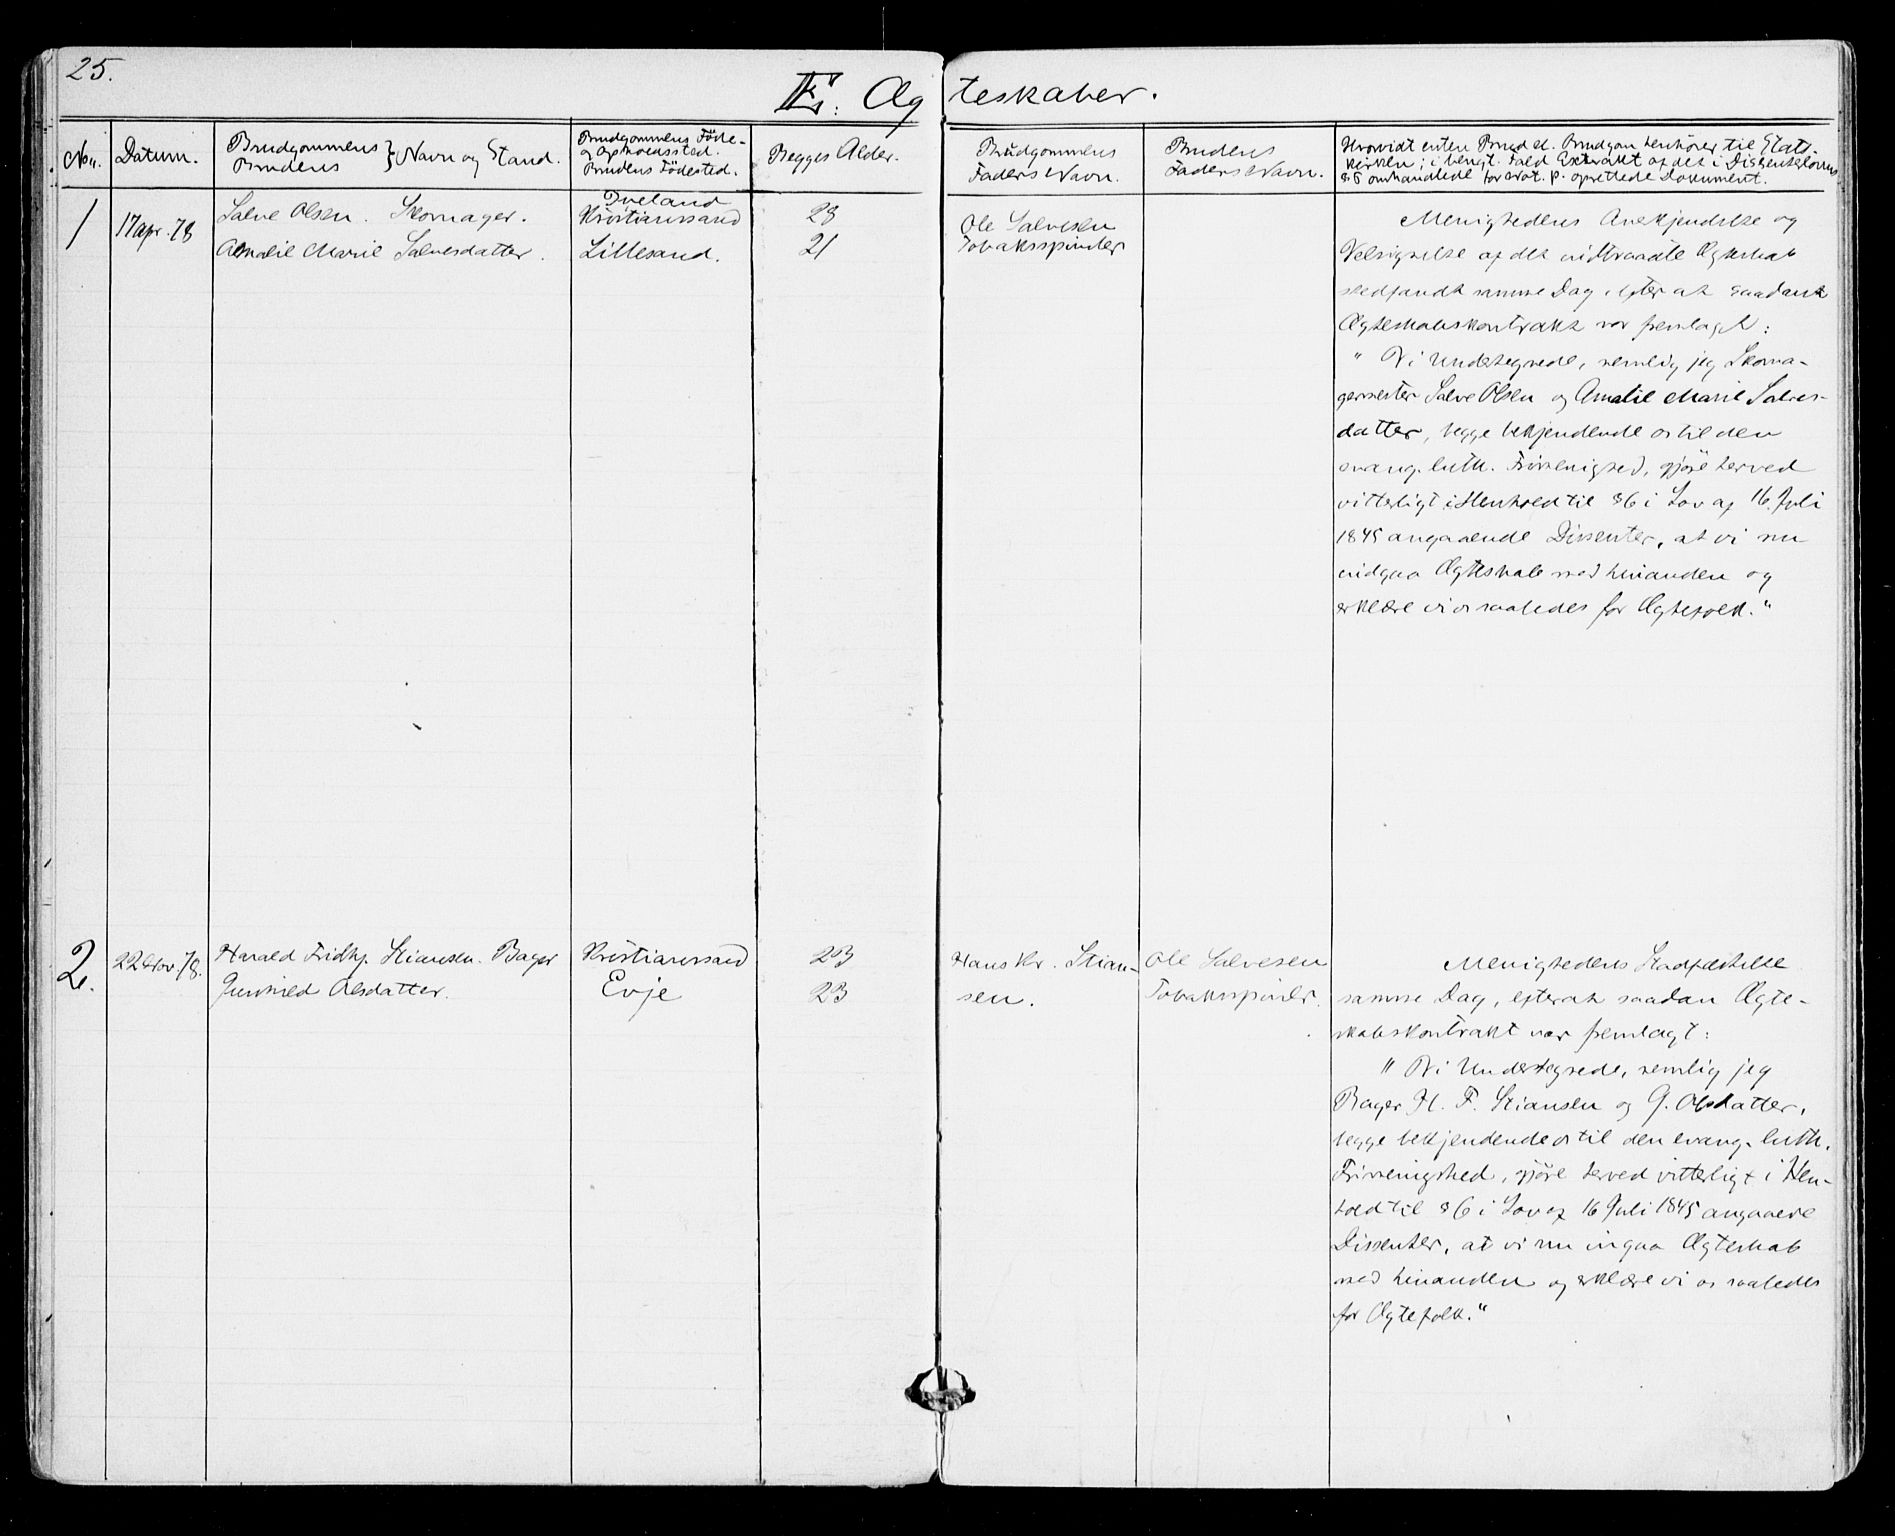 25.
E. Ægteskaber.
No. Datum. Brudgommens Brudens } Navn og Stand. Brudgommens Föde- og Opholdssted. Brudens Födested. Begges Alder. Brudgommens Faders Navn. Brudens Faders Navn.
Hvorvidt enten Brud el. Brudgom henhörer til Stats-
kirken; i bengt. Fald Extrakt af det i Dissenterlovens
§ 5 omhandlede for Not. p. oprettede Dokument.
Iveland
1 17 Apr. 78 Salve Olsen. Skomager. Kristianssand 28 Ole Salvesen
Amalie Marie Salvesdatter. Lillesand. 21 Tobaksspinder
Menighedens Anerkjendelse og
Velsignelse af det indtraadte Ægteskab
stedfandt samme Dag, efter at saadant
Ægteskabskontrakt var fremlaget:
" Vi Undertegnede, nemlig jeg Skoma-
germester Salve Olsen og Amalie Marie Salves-
datter, begge bekjendende os til den
evang. luth. Frimenighed, gjöre herved
vitterligt i Henhold til § 6 i Lov af 16. Juli
1845 angaaende Dissenter, at vi nu
indgaa Ægteskab med hinanden og
erklære vi os saaledes for Ægtefolk."
2. 22 Nov. 78. Harald Fridhj. Stiansen. Bager Kristianssand 23 Hans Kr. Stian- Ole Salvesen
Gunhild Olsdatter. Evje 23 sen. Tobaksspinder.
Menighedens Stadfæstelse
samme Dag, efterat saadan Ægte-
skabskontrakt var fremlagt:
" Vi Undertegnede, nemlig jeg
Bager H. F. Stiansen og G. Olsdatter,
begge bekjendende os til den evang. luth.
Frimenighed, gjöre herved vitterligt i Hen-
hold til § 6 i Lov af 16 Juli 1845 angaaende
Dissenter, at vi nu ingaa Ægteskab
med hinanden og erklære vi os saaledes
for Ægtefolk."